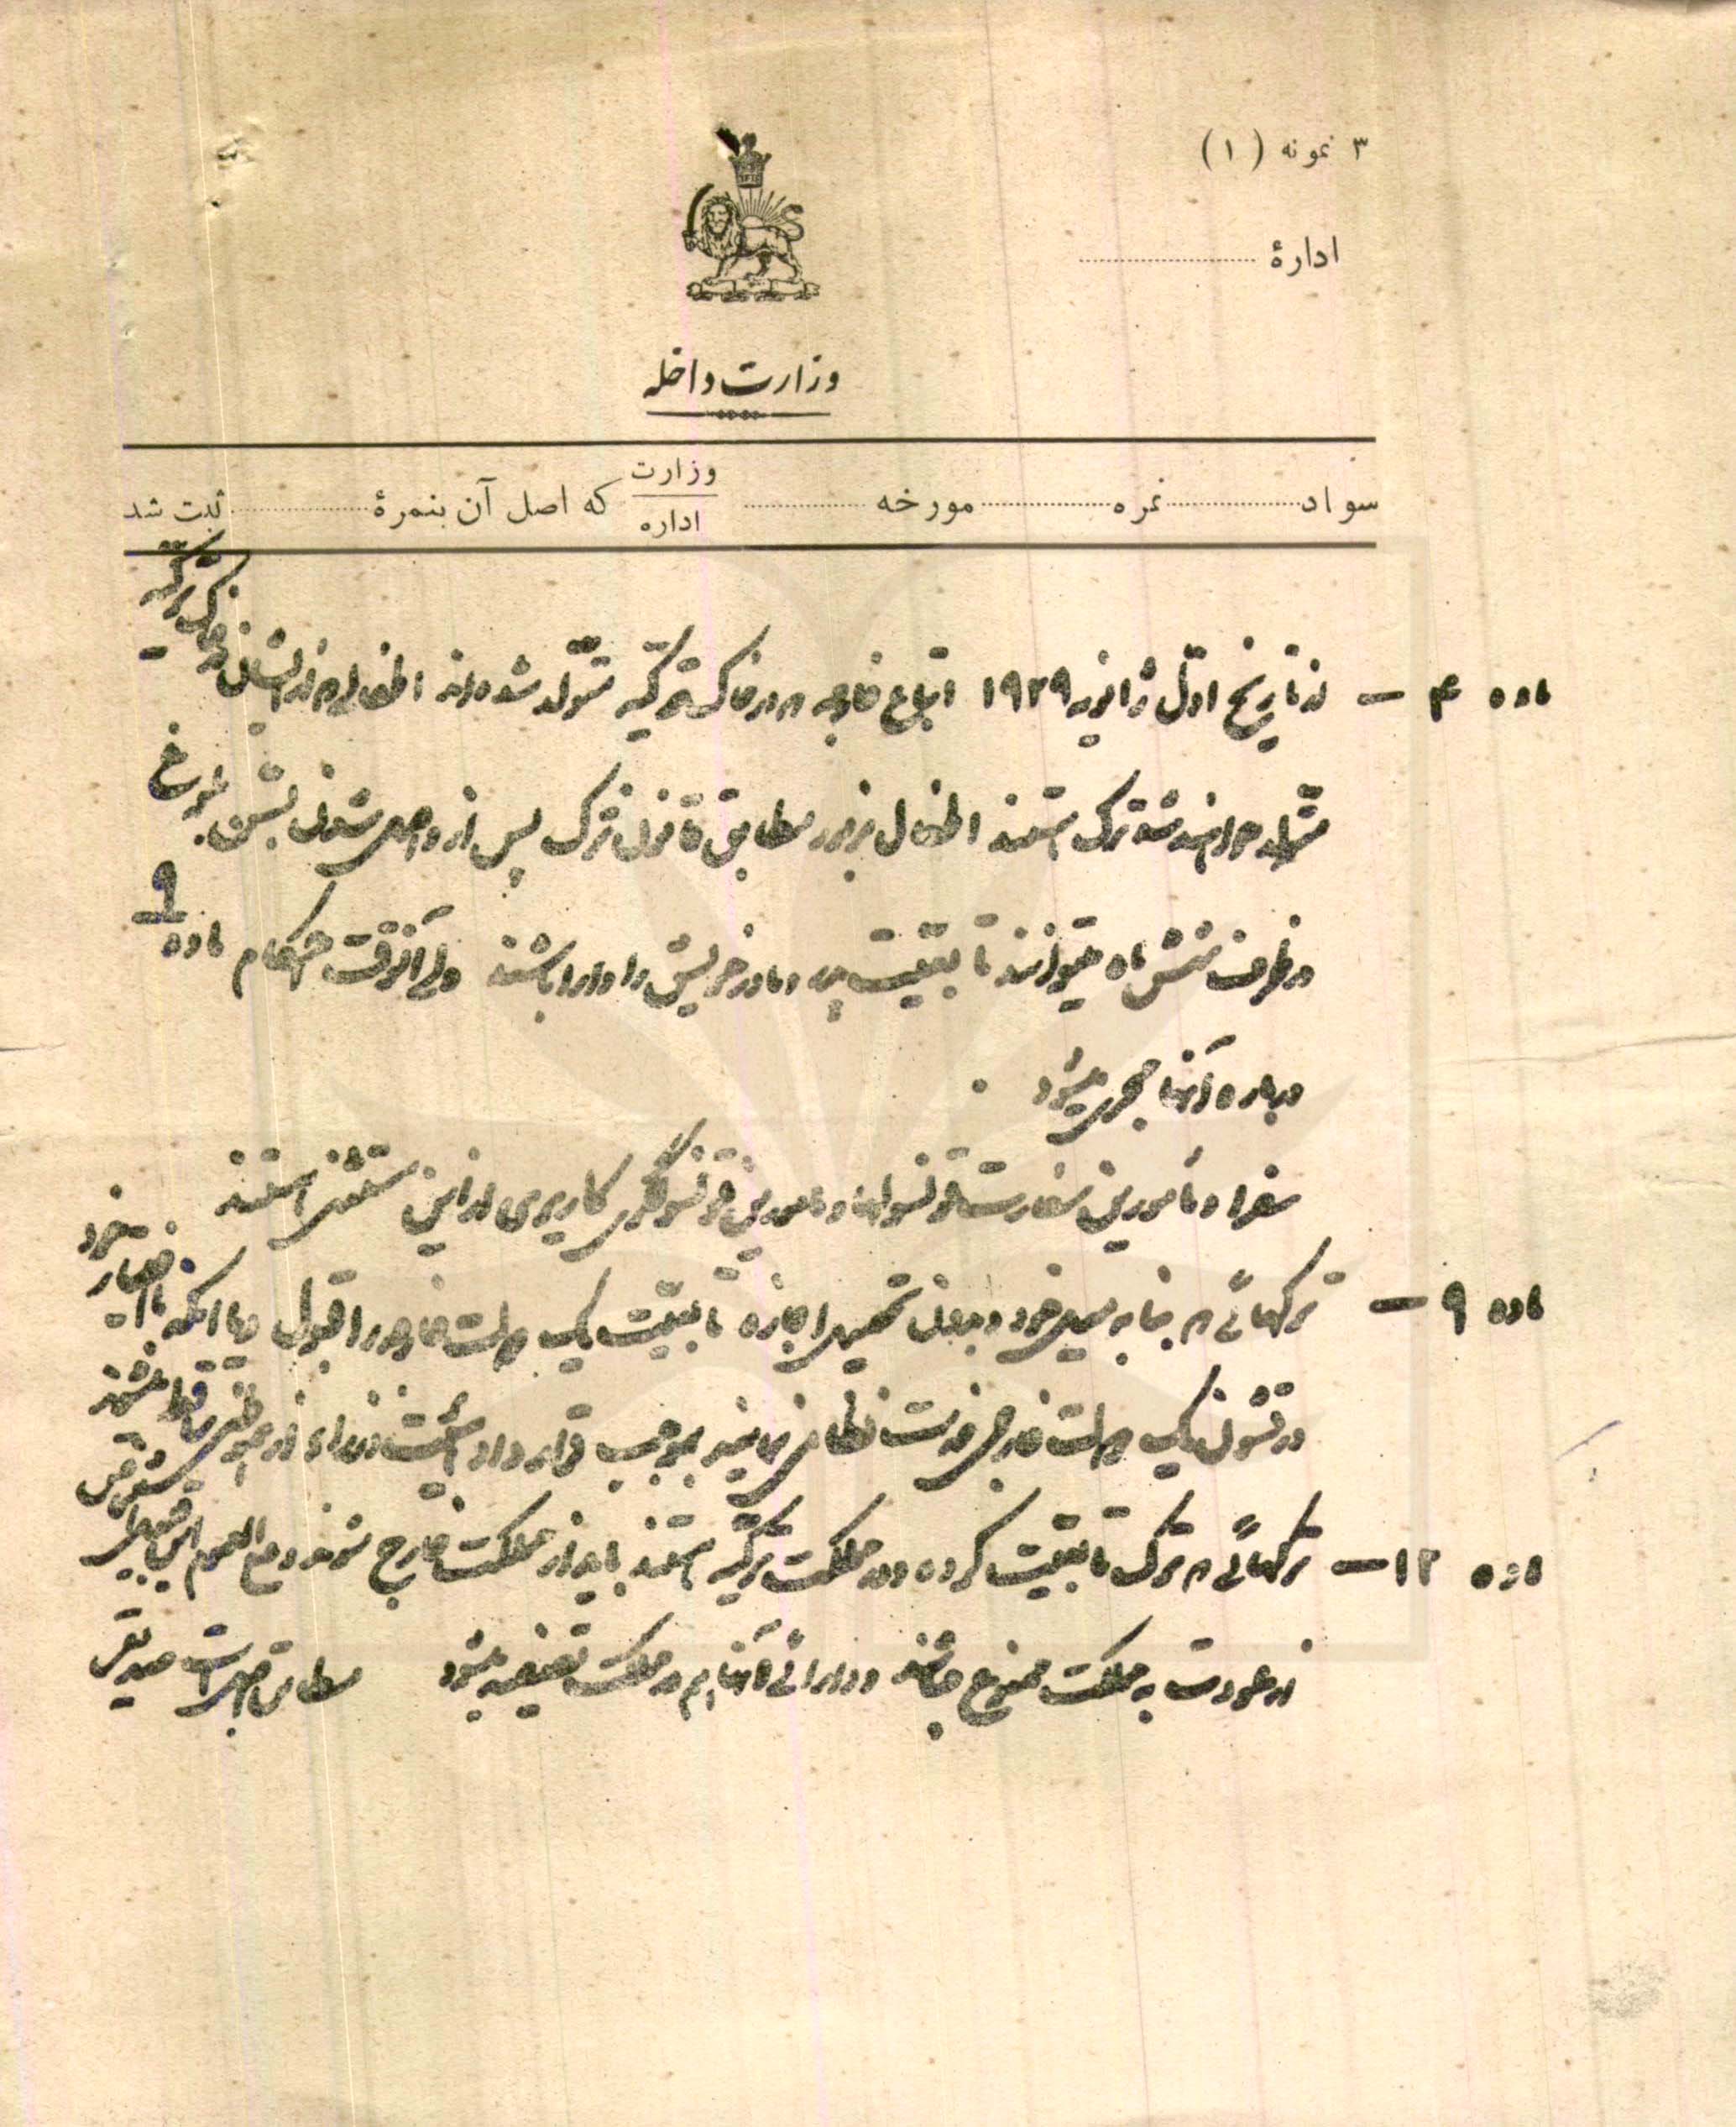 ۳ نمونه (۱)
ادارهٔ
وزارت داخله
سواد نمره مورخه وزارت اداره که اصل آن بنمرهٔ ثبت شد
ماده ۴ – از تاریخ اول ژانویه ۱۹۲۹ اتباع خارجه که در خاک ترکیه متولد شده‌اند اطفالی که از ایشان در خاک ترکیه
متولد خواهند شد ترک هستند اطفال مزبور مطابق قانون ترک پس از واصل شدن بسن بلوغ
در ظرف شش ماه میتوانند تابعیت پدر و مادر خویش را دارا باشند ولی آنوقت احکام ماده ۹
درباره آنها مجری میشود .
سفرا و مأمورین سفارت و قونسولها و مأمورین قونسولگری کاریری از این مستثنی هستند .
ماده ۹ – ترکهائی که بنا به میل خود و بدون تحصیل اجازه تابعیت یک دولت خارجه را قبول و یا اینکه باختیار خود
در قشون یک دولت خارجی خدمت نظامی نمایند بموجب قرارداد هیئت وزراء از ترکیت ساقط میشوند
ماده ۱۲ – ترکهائی که ترک تابعیت کرده و در مملکت ترکیه هستند باید از مملکت خارج شوند و علی العموم این قبیل اشخاص
از عودت به مملکت ممنوع میباشند و دارائی آنها هم در مملکت تصفیه میشود مطابق اصل است